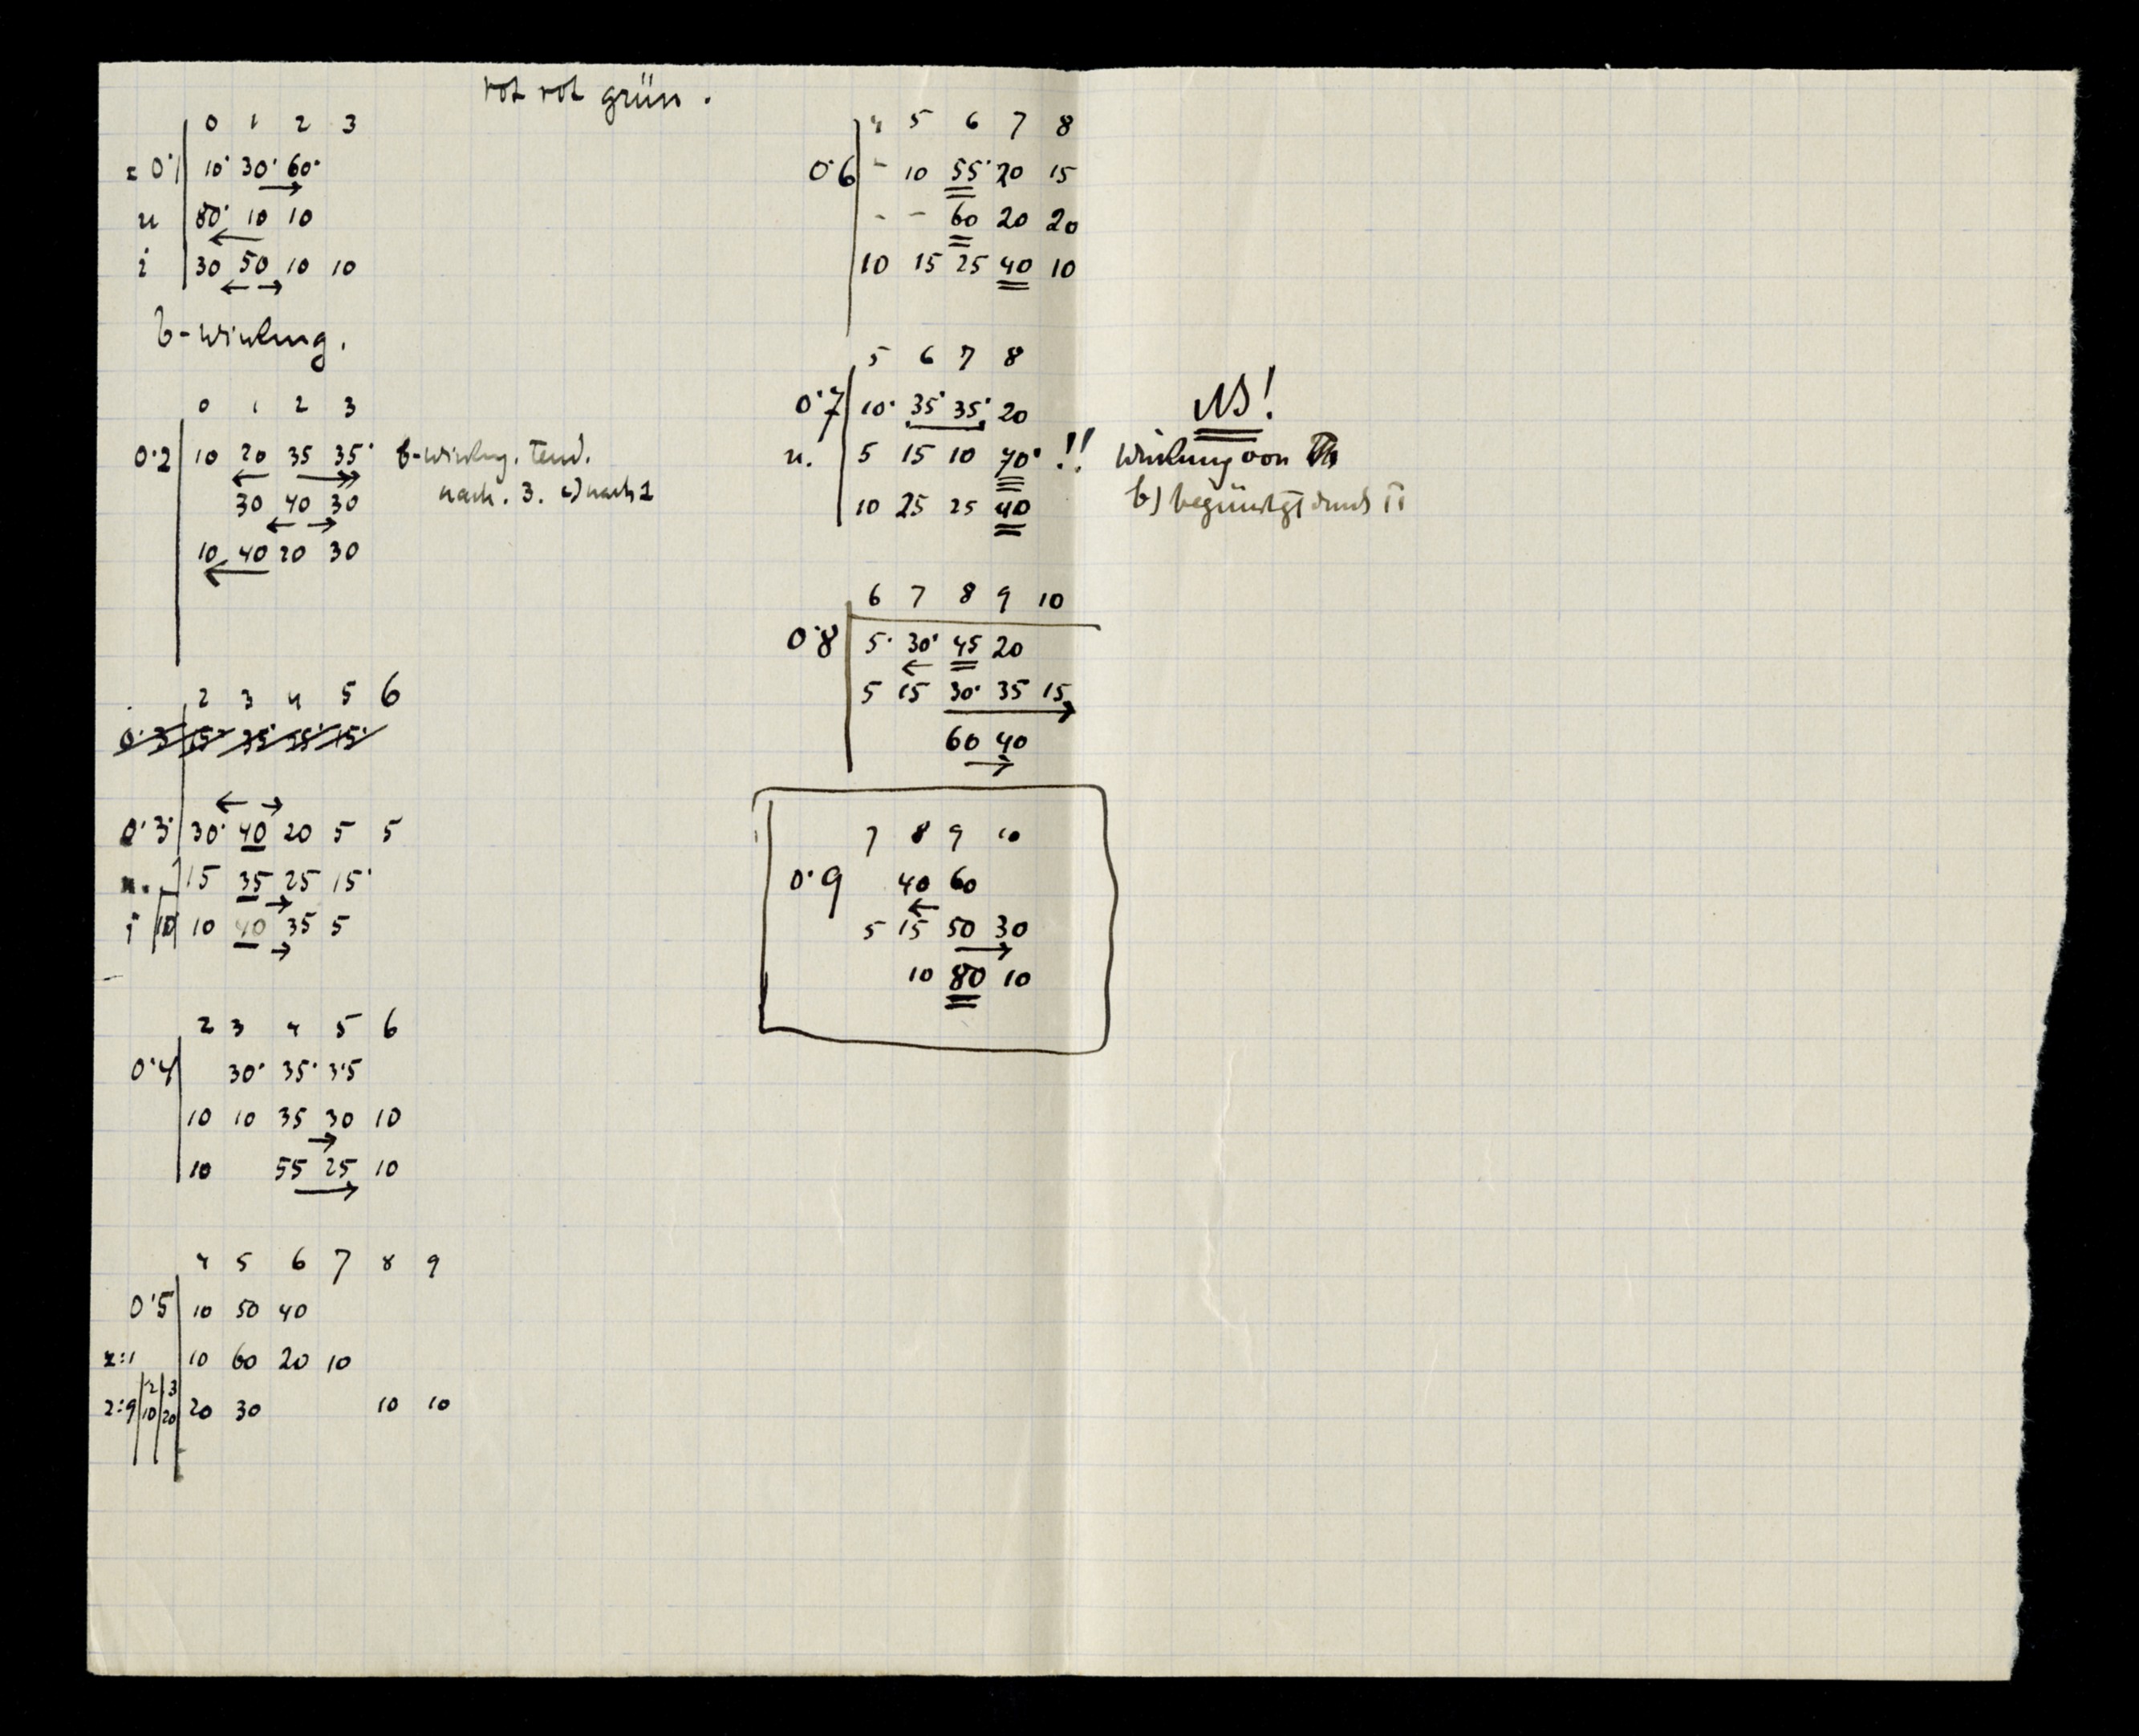 rot rot grün.
0 1 2 3
= 0·1 10· 30· 60·
u 80· 10 10
i 30 50 10 10
b-Wirkung.
0 1 2 3
0·2 10 20 35 35· b-Wirkung. Tend.
30 40 30 nach. 3. c) nach 1
10 40 20 30
2 3 4 5 6
0·3 15· 35· 35· 15·
0·3· 30· 40 20 5 5
u. 15 35 25 15·
i 10 10 40 35 5
2 3 4 5 6
0·4 30· 35· 35
10 10 35 30 10
10 55 25 10
4 5 6 7 8 9
0·5 10 50 40
2:1 10 60 20 10
2 3
2:9 10 20 20 30 10 10
4 5 6 7 8
0·6 - 10 55· 20 15
- - 60 20 20
10 15 25 40 10
5 6 7 8
0·7 10· 35· 35· 20
u. 5 15 10 70· !!
10 25 25 40
NB!
Wirkung von
b) begünstigt durch II
6 7 8 9 10
0·8 5· 30· 45 20
5 15 30· 35 15
60 40
7 8 9 10
0·9 40 60
5 15 50 30
10 80 10